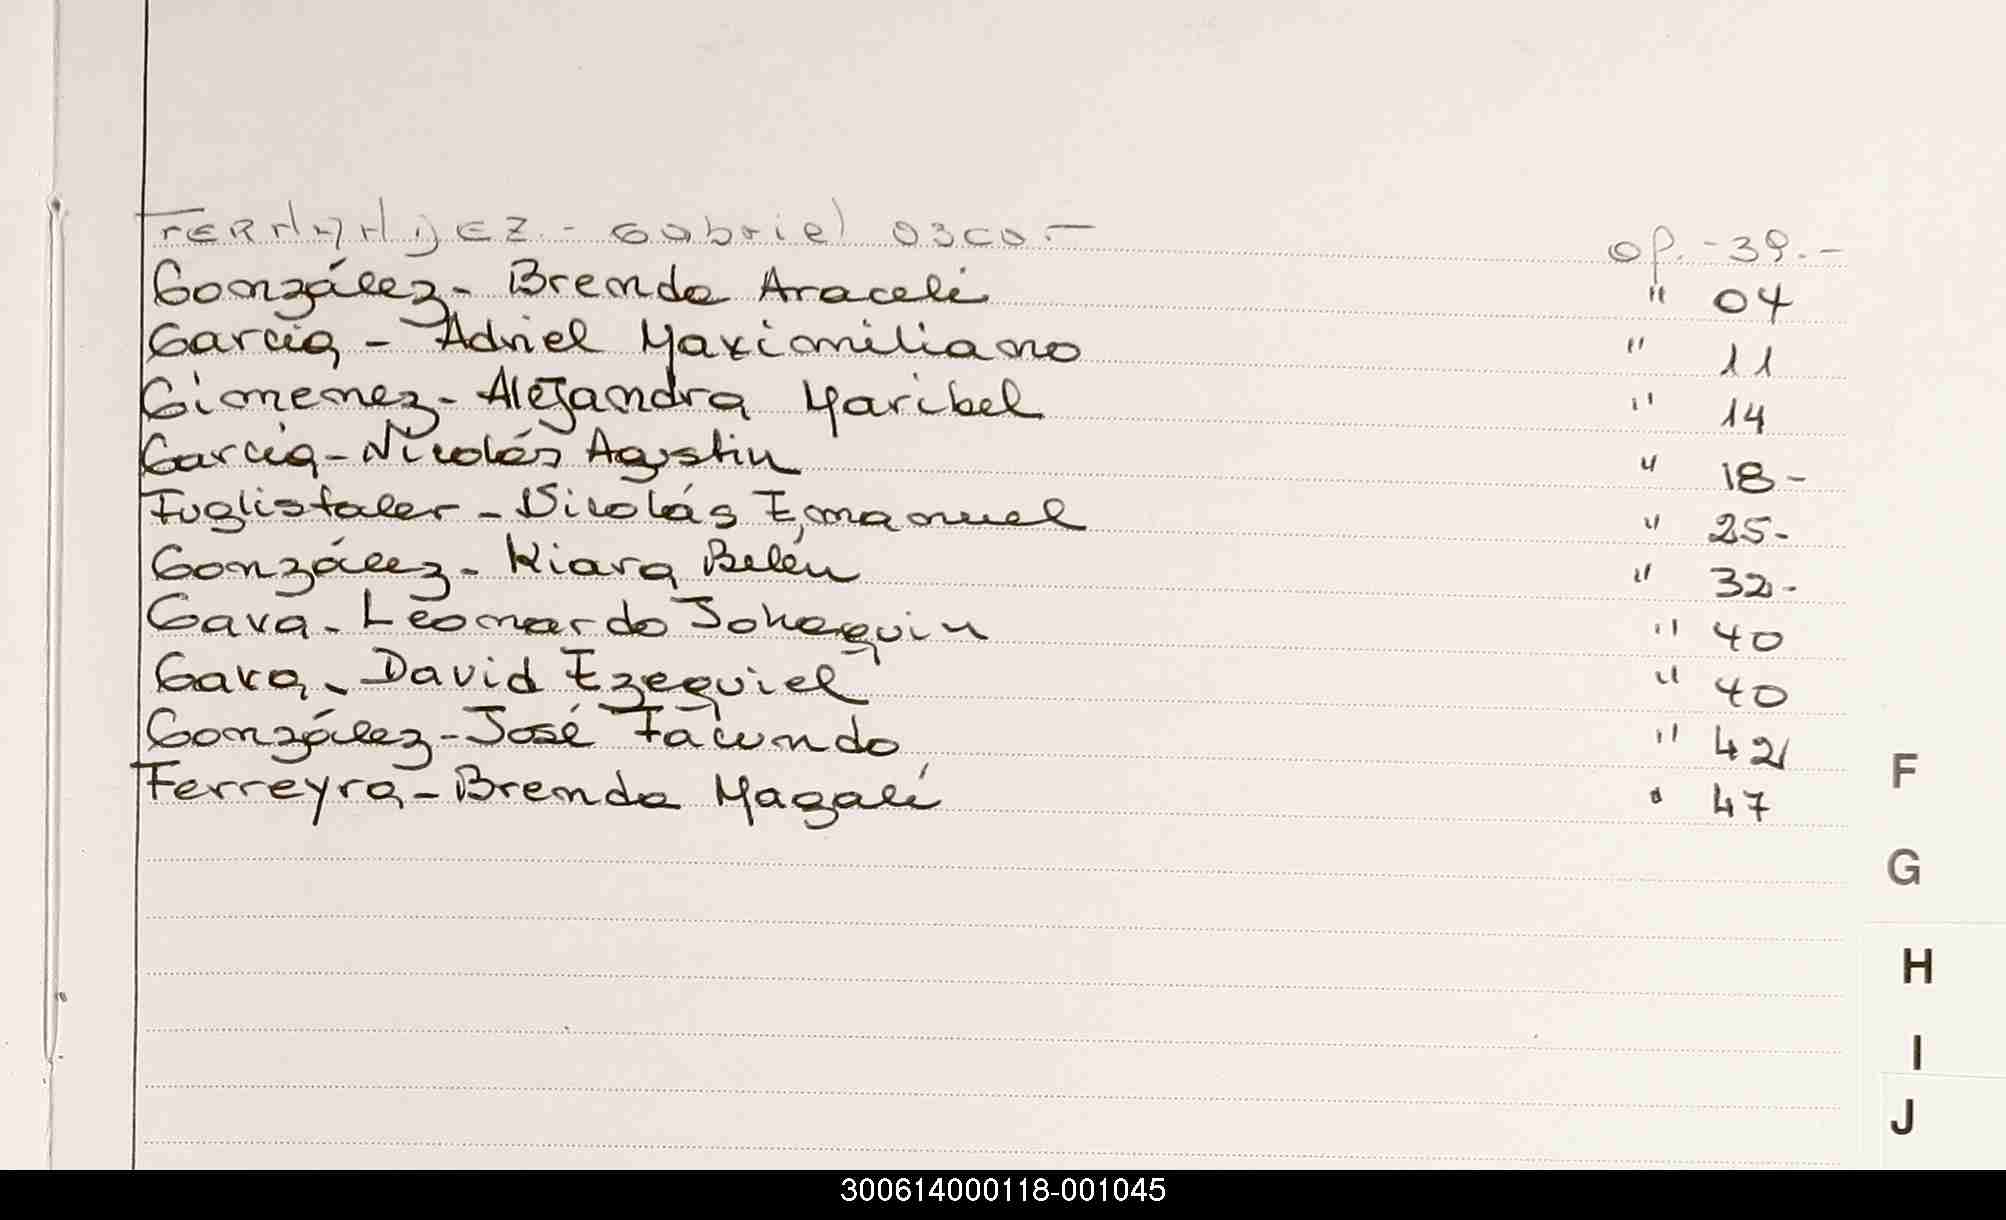 FERNANDEZ.- Gabriel Osca.- op.-39.-
González- Brenda Araceli " 04
Garcia - Adriel Maximiliano " 11
Gimenez- Alejandra Maribel " 14
Garcia-Nicolás Agustin " 18-
Fuglistaler - Nicolás Emanuel " 25-
González- Kiara Belén " 32-
Gava- Leonardo Johaquin " 40
Gava- David Ezequiel " 40
González-José Facundo " 42
Ferreyra-Brenda Magalí " 47
F
G
H
I
J
300614000118-001045